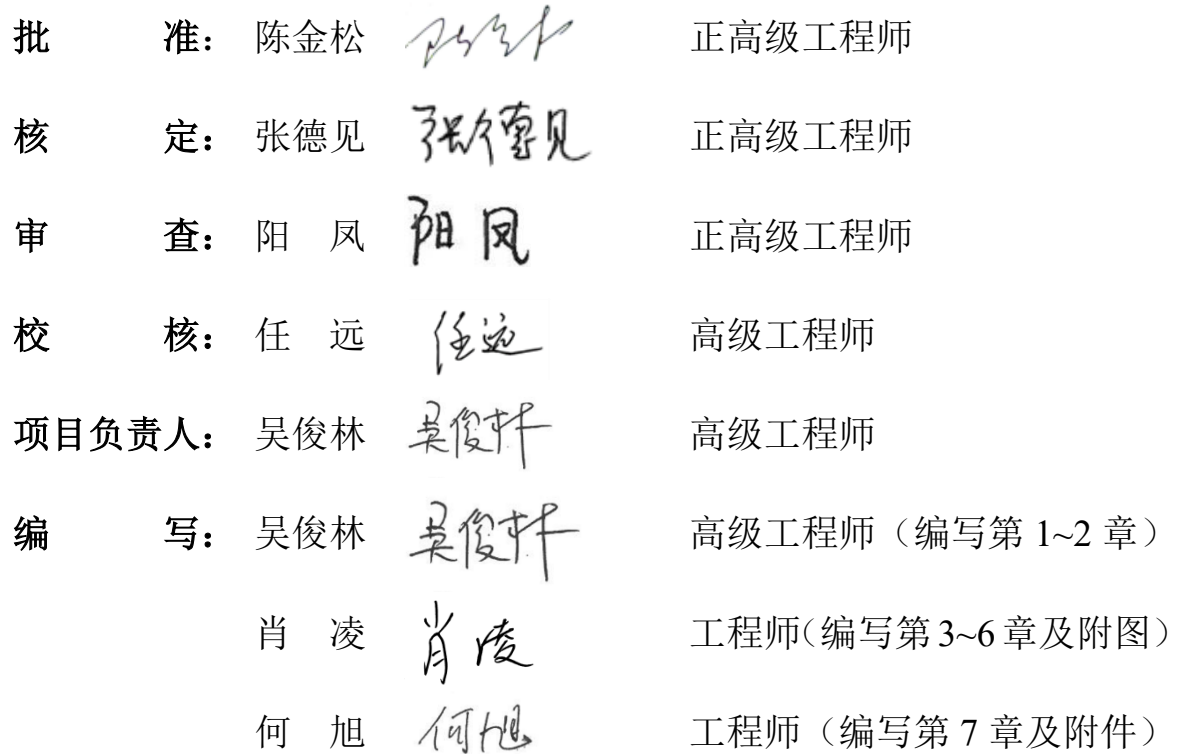 批 准： 陈金松 陈金松 正高级工程师
核 定： 张德见 张德见 正高级工程师
审 查： 阳 凤 阳凤 正高级工程师
校 核： 任 远 任远 高级工程师
项目负责人： 吴俊林 吴俊林 高级工程师
编 写： 吴俊林 吴俊林 高级工程师（编写第 1~2 章）
肖 凌 肖凌 工程师（编写第 3~6 章及附图）
何 旭 何旭 工程师（编写第 7 章及附件）